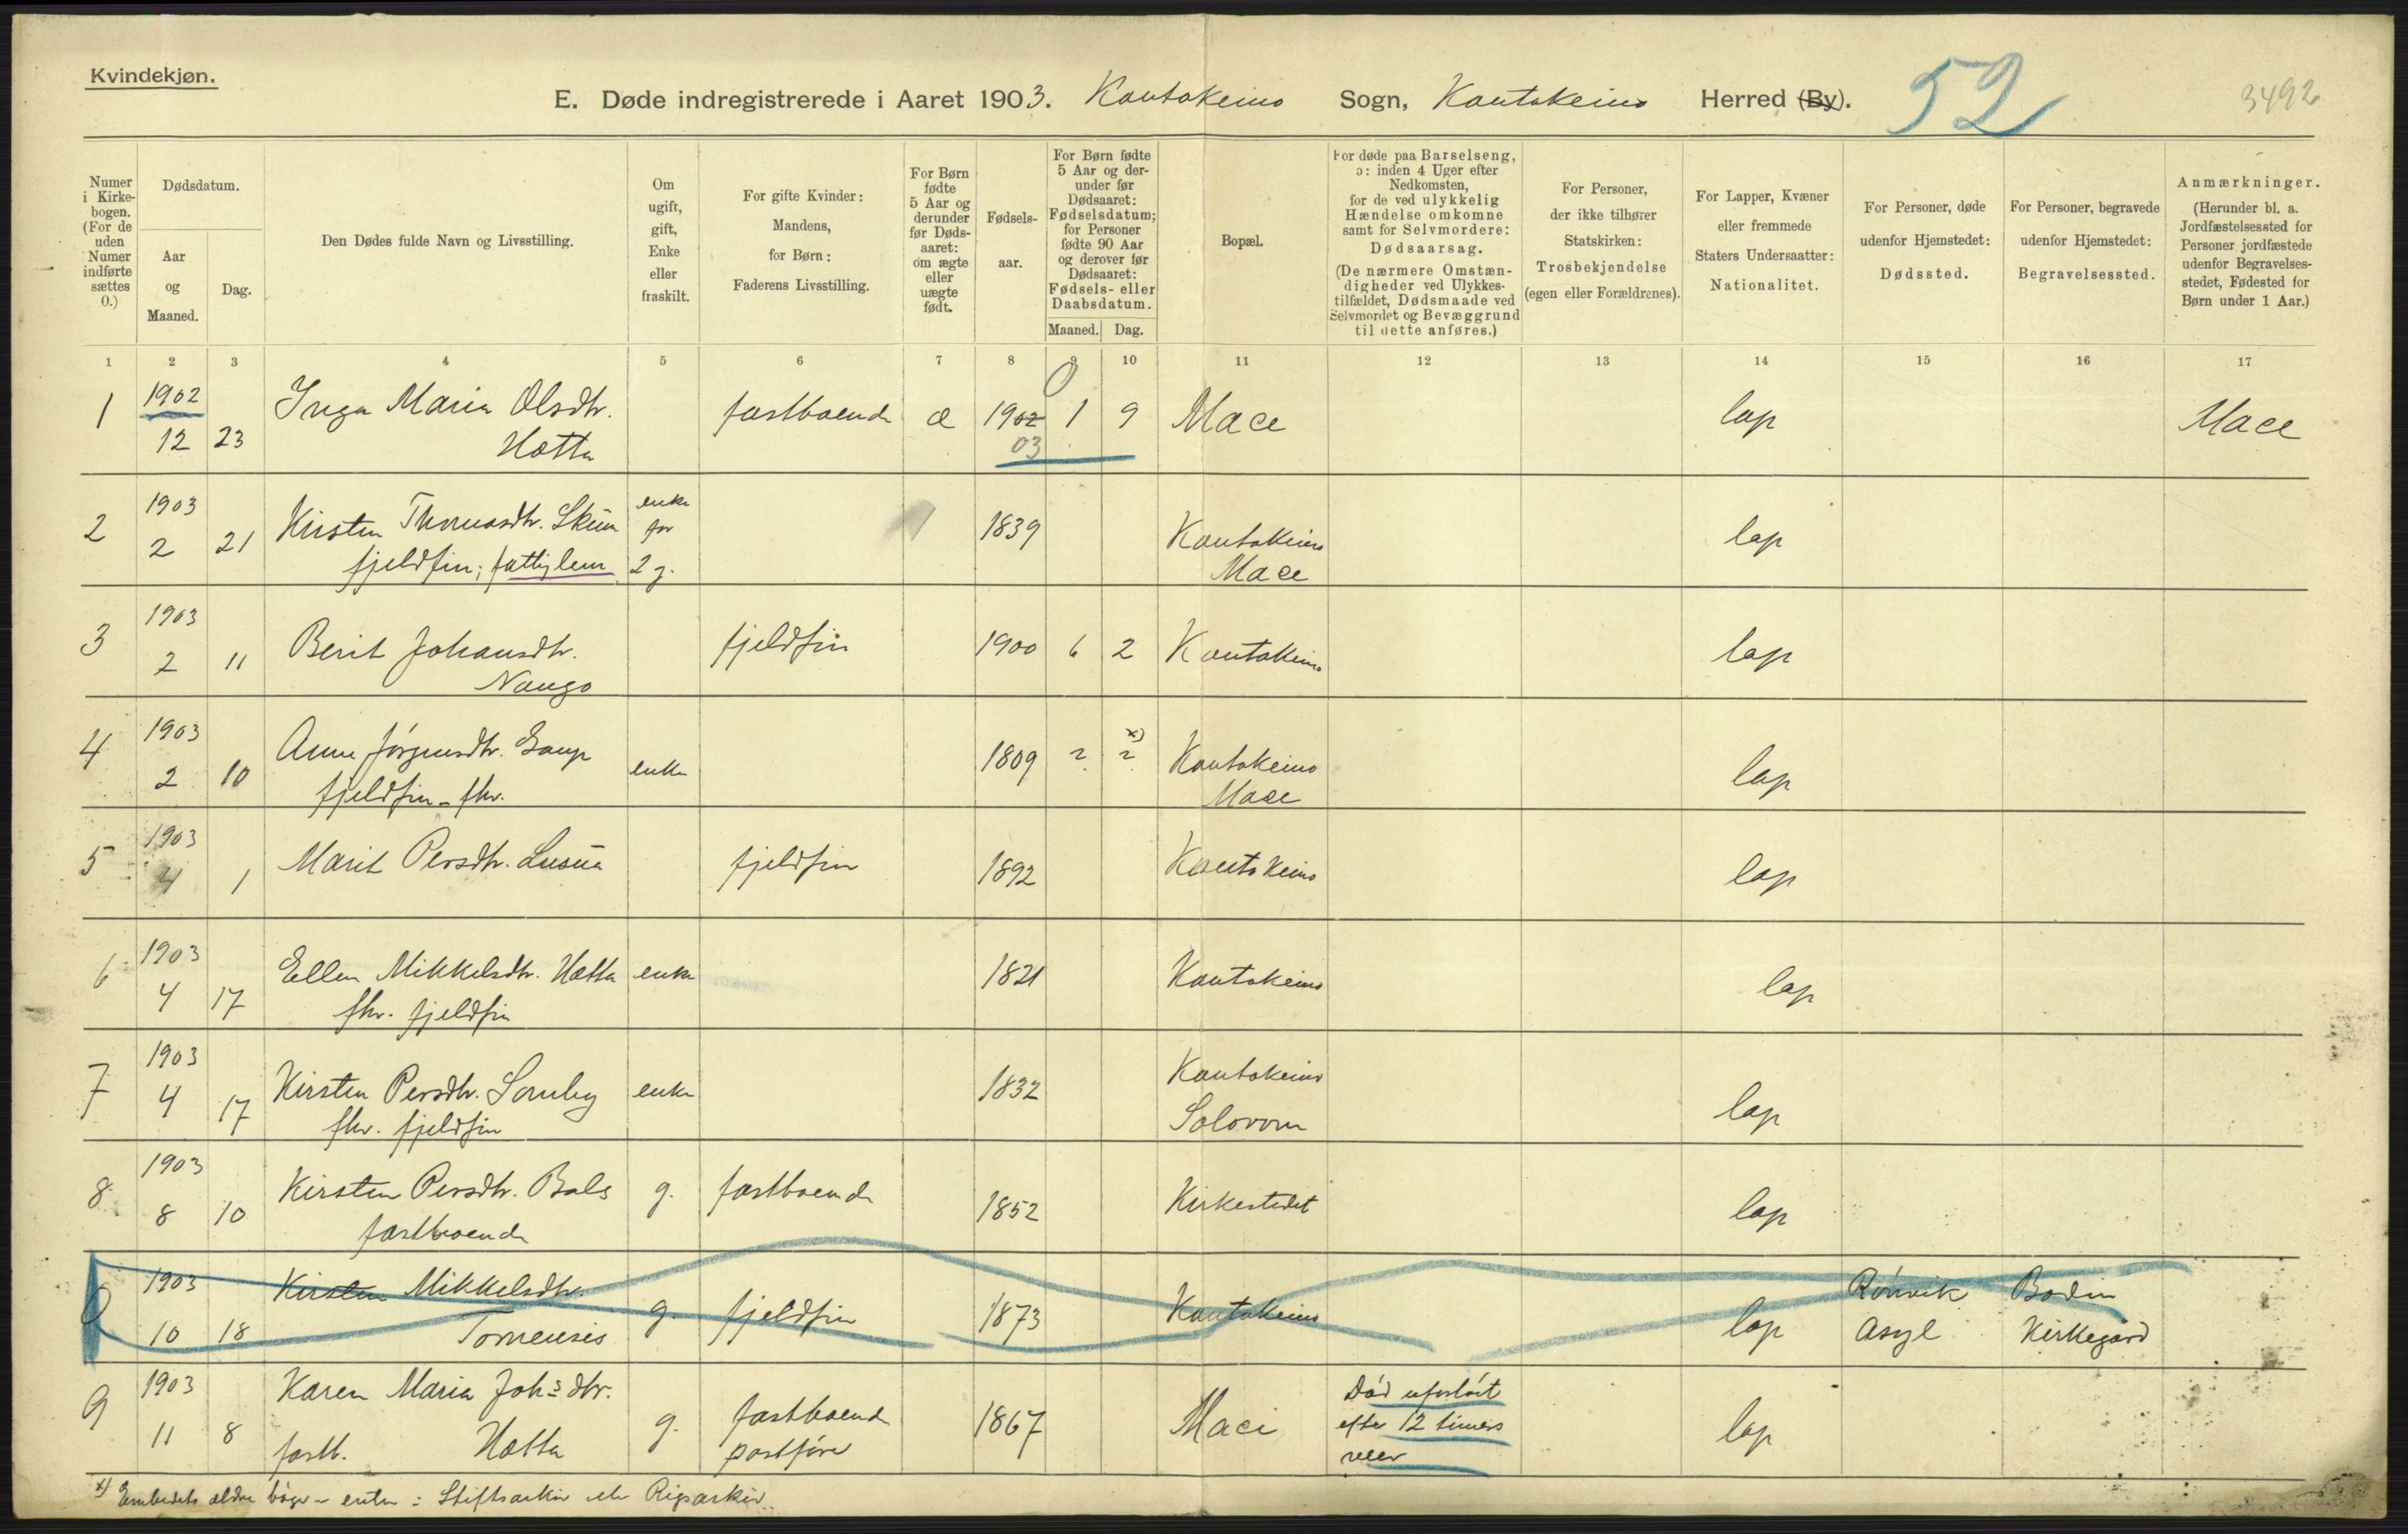 Kvindekjøn.
E. Døde indregistrerede i Aaret 1903. Kautokeino Sogn, Kautokeino Herred (By). 52 3492
Numer i Kirke-bogen. (For de uden Numer indførte sættes 0.)
Dødsdatum.
Aar og Maaned.
Dag.
Den Dødes fulde Navn og Livsstilling.
Om ugift, gift, Enke eller fraskilt.
For gifte Kvinder: Mandens, for Børn: Faderens Livsstilling.
For Børn fødte 5 Aar og derunder før Døds-aaret: om ægte eller uægte født.
Fødsels-aar.
For Børn fødte 5 Aar og der-under før Dødsaaret: Fødselsdatum; for Personer fødte 90 Aar og derover før Dødsaaret: Fødsels- eller Daabsdatum.
Maaned. Dag.
Bopæl.
For døde paa Barselseng, ɔ: inden 4 Uger efter Nedkomsten, for de ved ulykkelig Hændelse omkomne samt for Selvmordere: Dødsaarsag. (De nærmere Omstæn-digheder ved Ulykkes-tilfældet, Dødsmaade ved Selvmordet og Bevæggrund til dette anføres.)
For Personer, der ikke tilhører Statskirken: Trosbekjendelse (egen eller Forældrenes).
For Lapper, Kvæner eller fremmede Staters Undersaatter: Nationalitet.
For Personer, døde udenfor Hjemstedet: Dødssted.
For Personer, begravede udenfor Hjemstedet: Begravelsessted.
Anmærkninger. (Herunder bl. a. Jordfæstelsessted for Personer jordfæstede udenfor Begravelses-stedet, Fødested for Børn under 1 Aar.)
1 2 3 4 5 6 7 8 9 10 11 12 13 14 15 16 17
1 1902 12 23 Inga Maria Olsdtr. Hætta fastboende æ 1902 03 1 9 Mace lap Mace
2 1903 2 21 Kirsten Thomasdtr. Skum enke for 2 g. 1839 Kautokeino lap
fjeldfin; fattiglem Mace
3 1903 2 11 Berit Johansdtr. Nango fjeldfin 1900 6 2 Kautokeino lap
4 1903 2 10 Anne Jørgensdtr. Gaup enke 1809 ? ? x) Kautokeino lap
fjeldfin - fhv. Mace
5 1903 4 1 Marit Persdtr. fjeldfin 1892 Kautokeino lap
6 1903 4 17 Ellen Mikkelsdtr. Hætta enke 1821 Kautokeino lap
fhv. fjeldfin
7 1903 4 17 Kirsten Persdtr. Somby enke 1832 Kautokeino lap
fhv. fjeldfin
8 1903 8 10 Kirsten Persdtr. Bals g. fastboende 1852 Kirkestedet lap
fastboende
0 1903 10 18 Kirsten Mikkelsdtr. Tornensis g. fjeldfin 1873 Kautokeino lap Rønvik Asyl Bodin Kirkegård
9 1903 11 8 Karen Maria Johsdtr. g. fastboende 1867 Maci Død uforløst lap
fastb. Hætta postfører efter 12 timers veer
x) Embedets ældre bøger - enten i Stiftsarkiv eller Rigsarkiv.